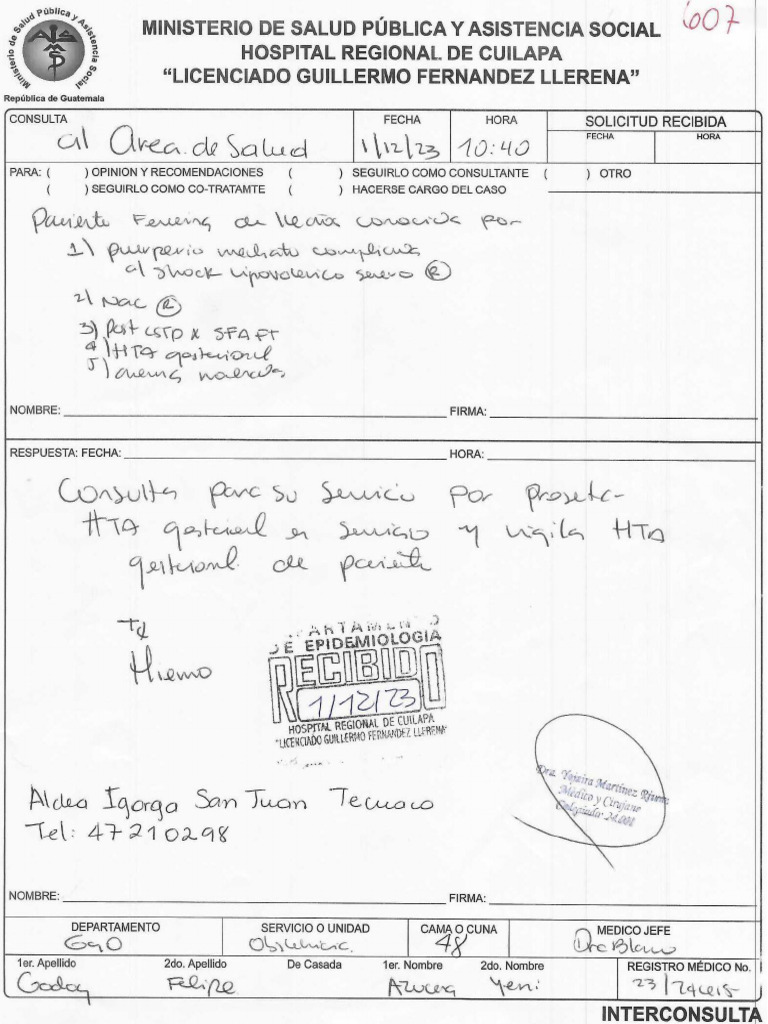 607
Ministerio de Salud Pública y Asistencia Social
República de Guatemala
MINISTERIO DE SALUD PÚBLICA Y ASISTENCIA SOCIAL
HOSPITAL REGIONAL DE CUILAPA
“LICENCIADO GUILLERMO FERNANDEZ LLERENA”
CONSULTA al Area de Salud
FECHA 1/12/23
HORA 10:40
SOLICITUD RECIBIDA
FECHA HORA
PARA: ( ) OPINION Y RECOMENDACIONES ( ) SEGUIRLO COMO CONSULTANTE ( ) OTRO
( ) SEGUIRLO COMO CO-TRATAMTE ( ) HACERSE CARGO DEL CASO
Paciente de conocida por
1) puerperio mediato
al shock hipovolemico severo (R)
2) Nac (R)
3) Post CSTP x SFA FT
4) HTA gestacional
5)
NOMBRE: FIRMA:
RESPUESTA: FECHA: HORA:
Consulta para su servicio por
HTA gestacional en servicio y vigila HTA
gestacional de paciente
DEPARTAMENTO
DE EPIDEMIOLOGIA
RECIBIDO
1/12/23
HOSPITAL REGIONAL DE CUILAPA
"LICENCIADO GUILLERMO FERNANDEZ LLERENA"
Dra. Yojaira Martínez Rivera
Médico y Cirujano
Colegiado: 24,001
Aldea Igorga San Juan Tecuaco
Tel: 47210298
NOMBRE: FIRMA:
DEPARTAMENTO GyO
SERVICIO O UNIDAD Obstetricia.
CAMA O CUNA 48
MEDICO JEFE Dra Blanco
1er. Apellido 2do. Apellido De Casada 1er. Nombre 2do. Nombre REGISTRO MÉDICO No.
Godoy Felipe Azucena Yeni 23/
INTERCONSULTA